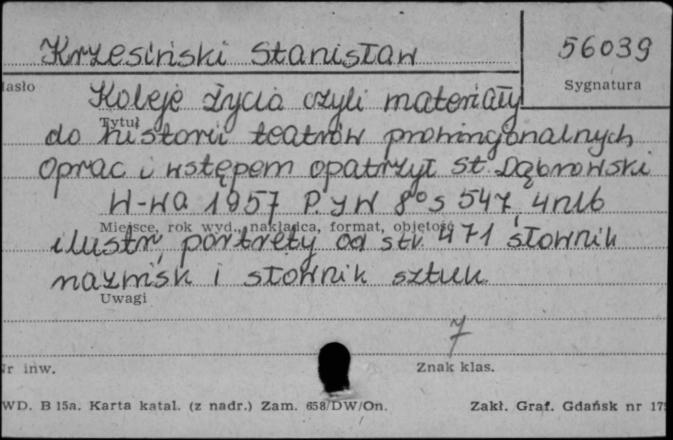 Krzesiński Stanisław
56039
Hasło
Sygnatura
Koleje życia czyli materiały
Tytuł
do historii teatrów prowincjonalnych
Oprac i wstępem opatrzył St. Dąbrowski
W-wa 1957 P.I.W 8° s 547, 4nlb
Miejsce, rok wyd., nakładca, format, objętość
ilustr, portrety od str. 471 słownik
nazwisk i słownik sztuk.
Uwagi
7
Nr inw.
Znak klas.
WD. B 15a. Karta katal. (z nadr.) Zam. 658/DW/On.
Zakł. Graf. Gdańsk nr